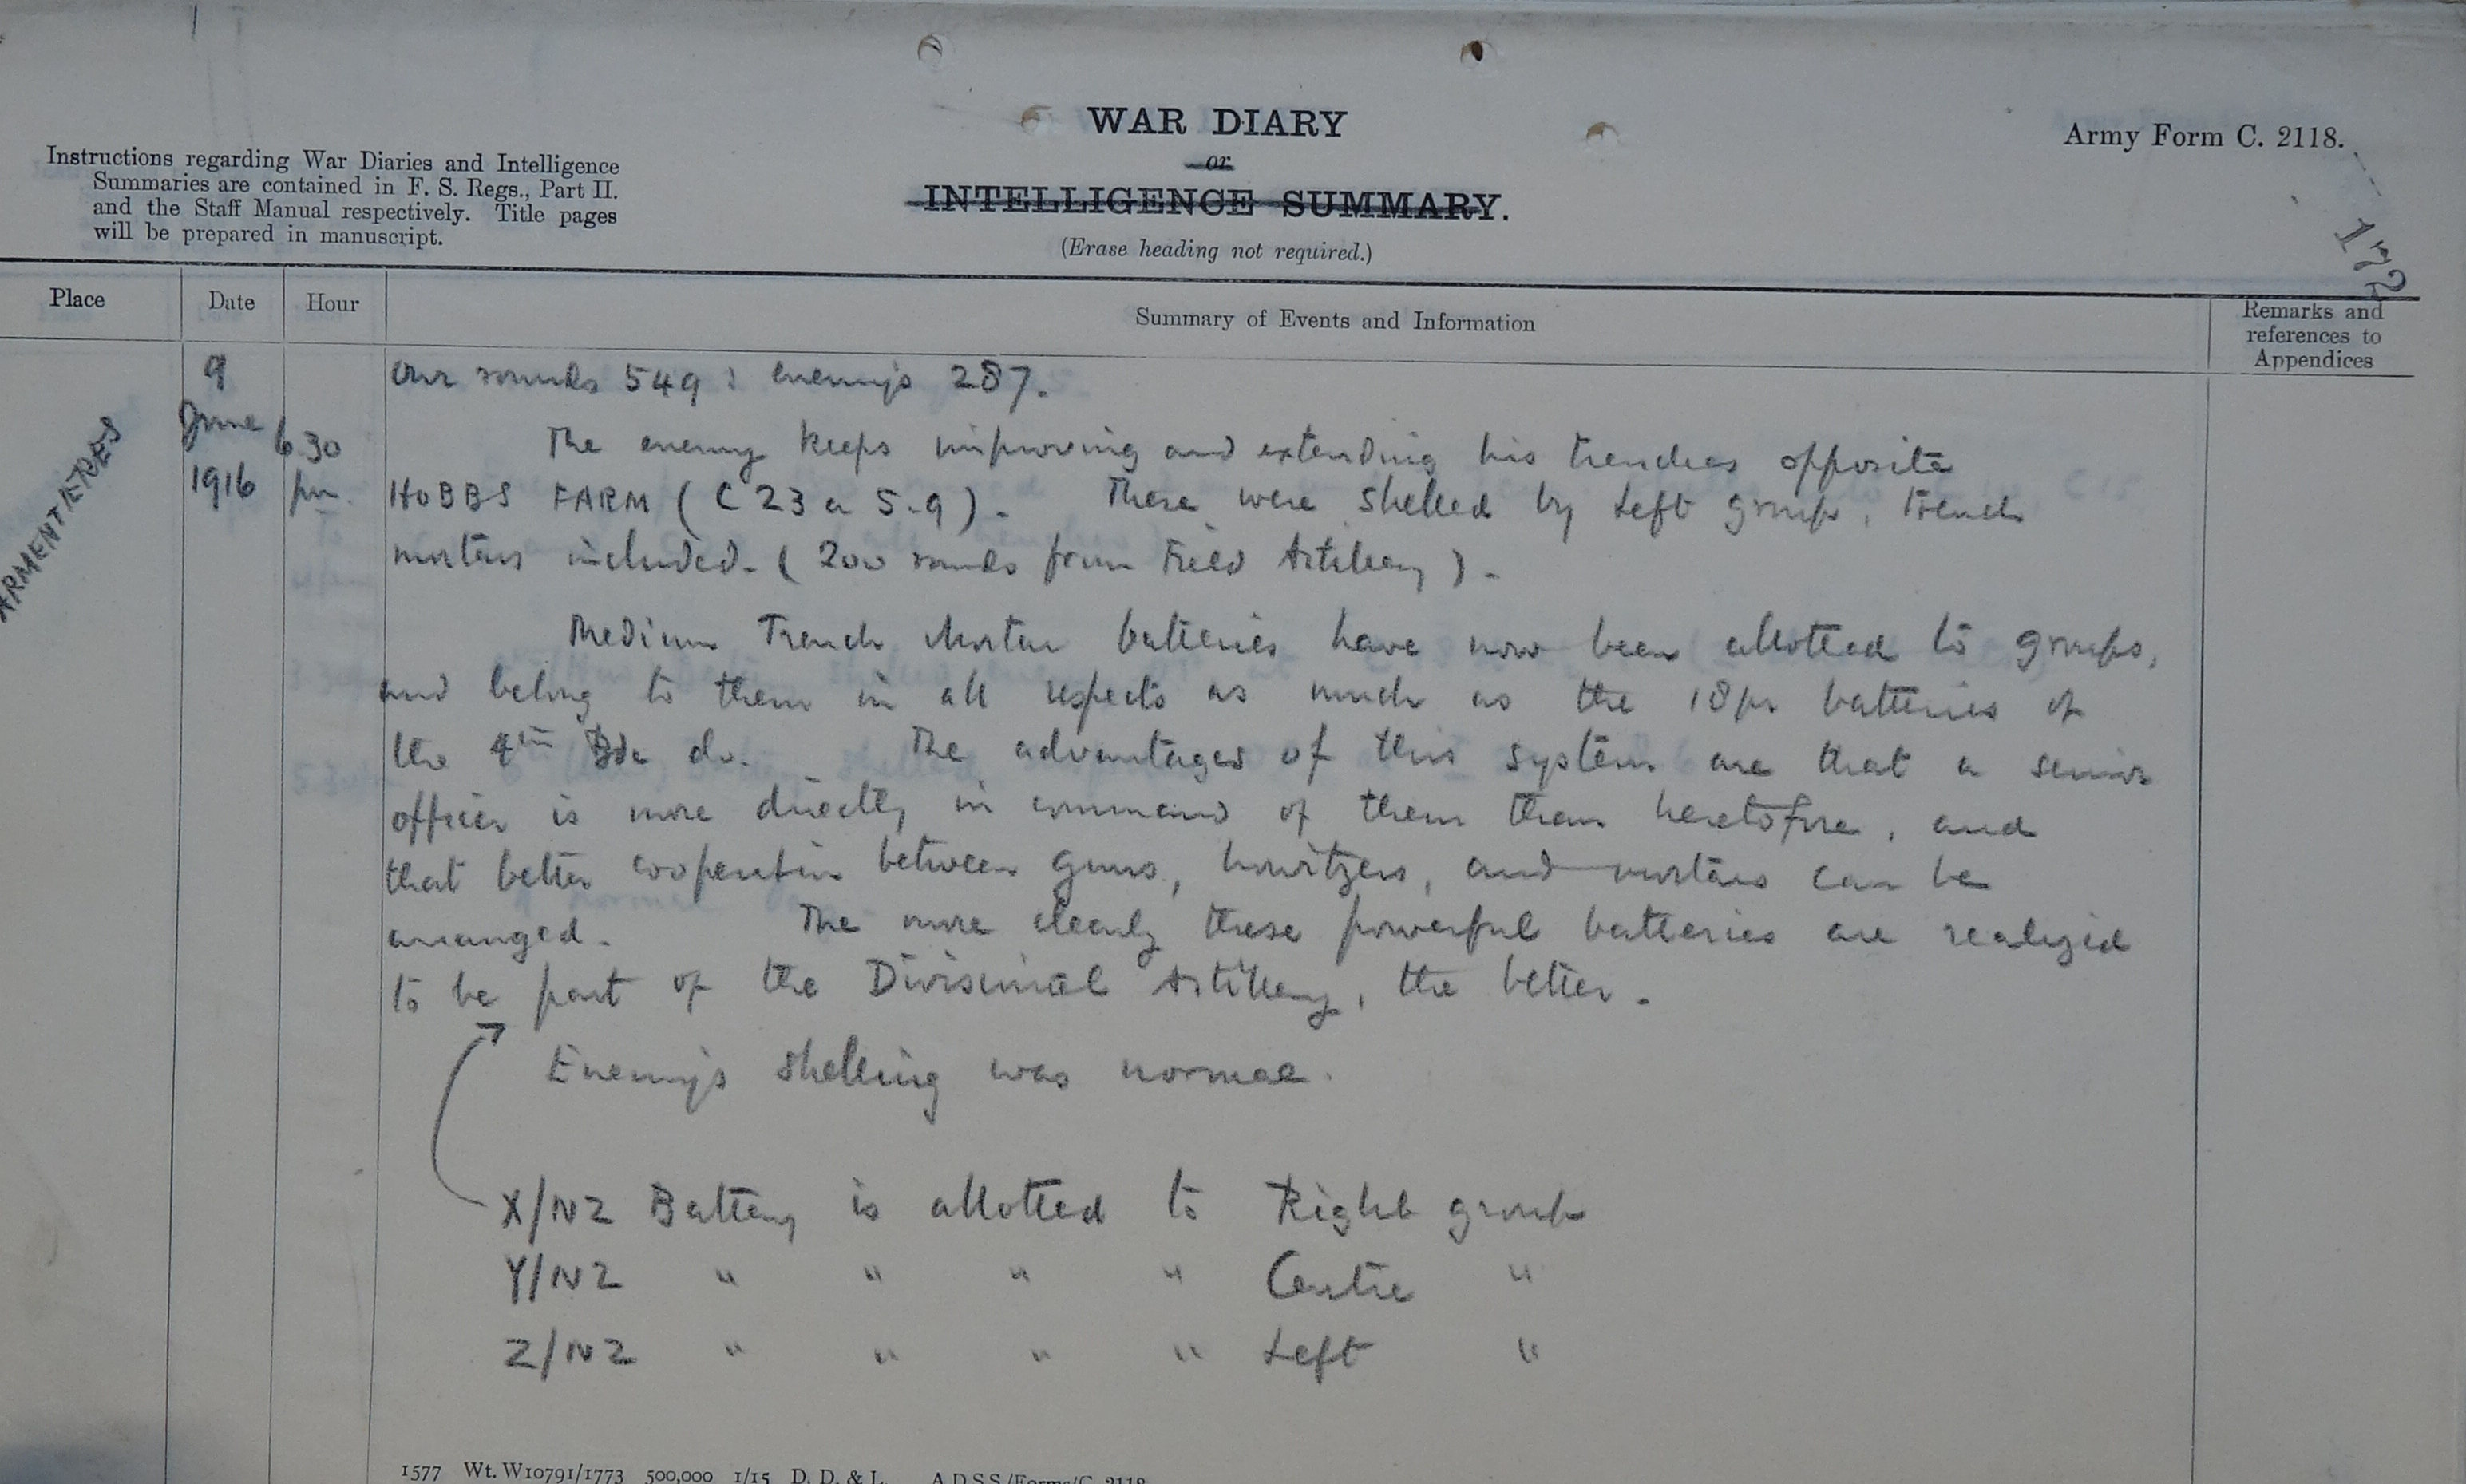 WAR DIARY
or
INTELLIGENCE SUMMARY.
(Erase heading not required.)
Army Form C. 2118.
172
Instructions regarding War Diaries and Intelligence
Summaries are contained in F. S. Regs., Part II.
and the Staff Manual respectively. Title pages
will be prepared in manuscript.
Place Date Hour Summary of Events and Information Remarks and references to Appendices
ARMENTIERES
9
June
1916
6.30
pm.
Our rounds 549 : enemy's 287.
The enemy keeps improving and extending his trenches opposite
HOBBS FARM (C 23 a 5.9). These were shelled by Left group, trench
mortars included. (200 rounds from Field Artillery).
Medium Trench Mortar batteries have now been allotted to groups,
and belong to them in all respects as much as the 18pr batteries of
the 4th Bde do. The advantages of this system are that a senior
officer is more directly in command of them than heretofore, and
that better cooperation between guns, howitzers, and mortars can be
arranged. The more clearly these powerful batteries are realized
to be part of the Divisional Artillery, the better.
Enemy's shelling was normal.
X/NZ Battery is allotted to Right group
Y/NZ " " " " Centre "
Z/NZ " " " " Left "
1577 Wt. W10791/1773 500,000 1/15 D. D. & L. A.D.S.S./Forms/C. 2118.